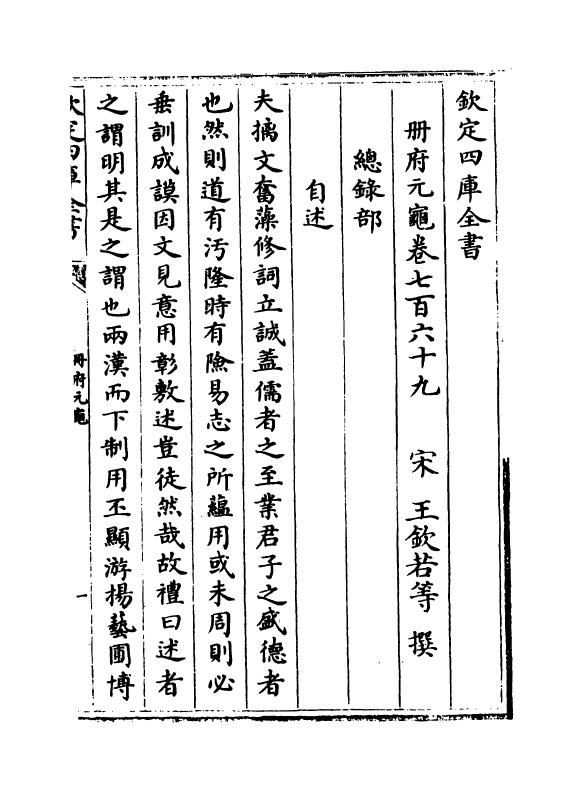 欽定四庫全書
冊府元龜卷七百六十九　宋　王欽若等　撰
總錄部
自述
夫摛文奮藻修詞立誠蓋儒者之至業君子之盛德者
也然則道有汚隆時有險易志之所蘊用或未周則必
垂訓成謨因文見意用彰敷述豈徒然哉故禮曰述者
之謂明其是之謂也兩漢而下制用丕顯游揚藝圃博
欽定四庫全書
冊府元龜
一